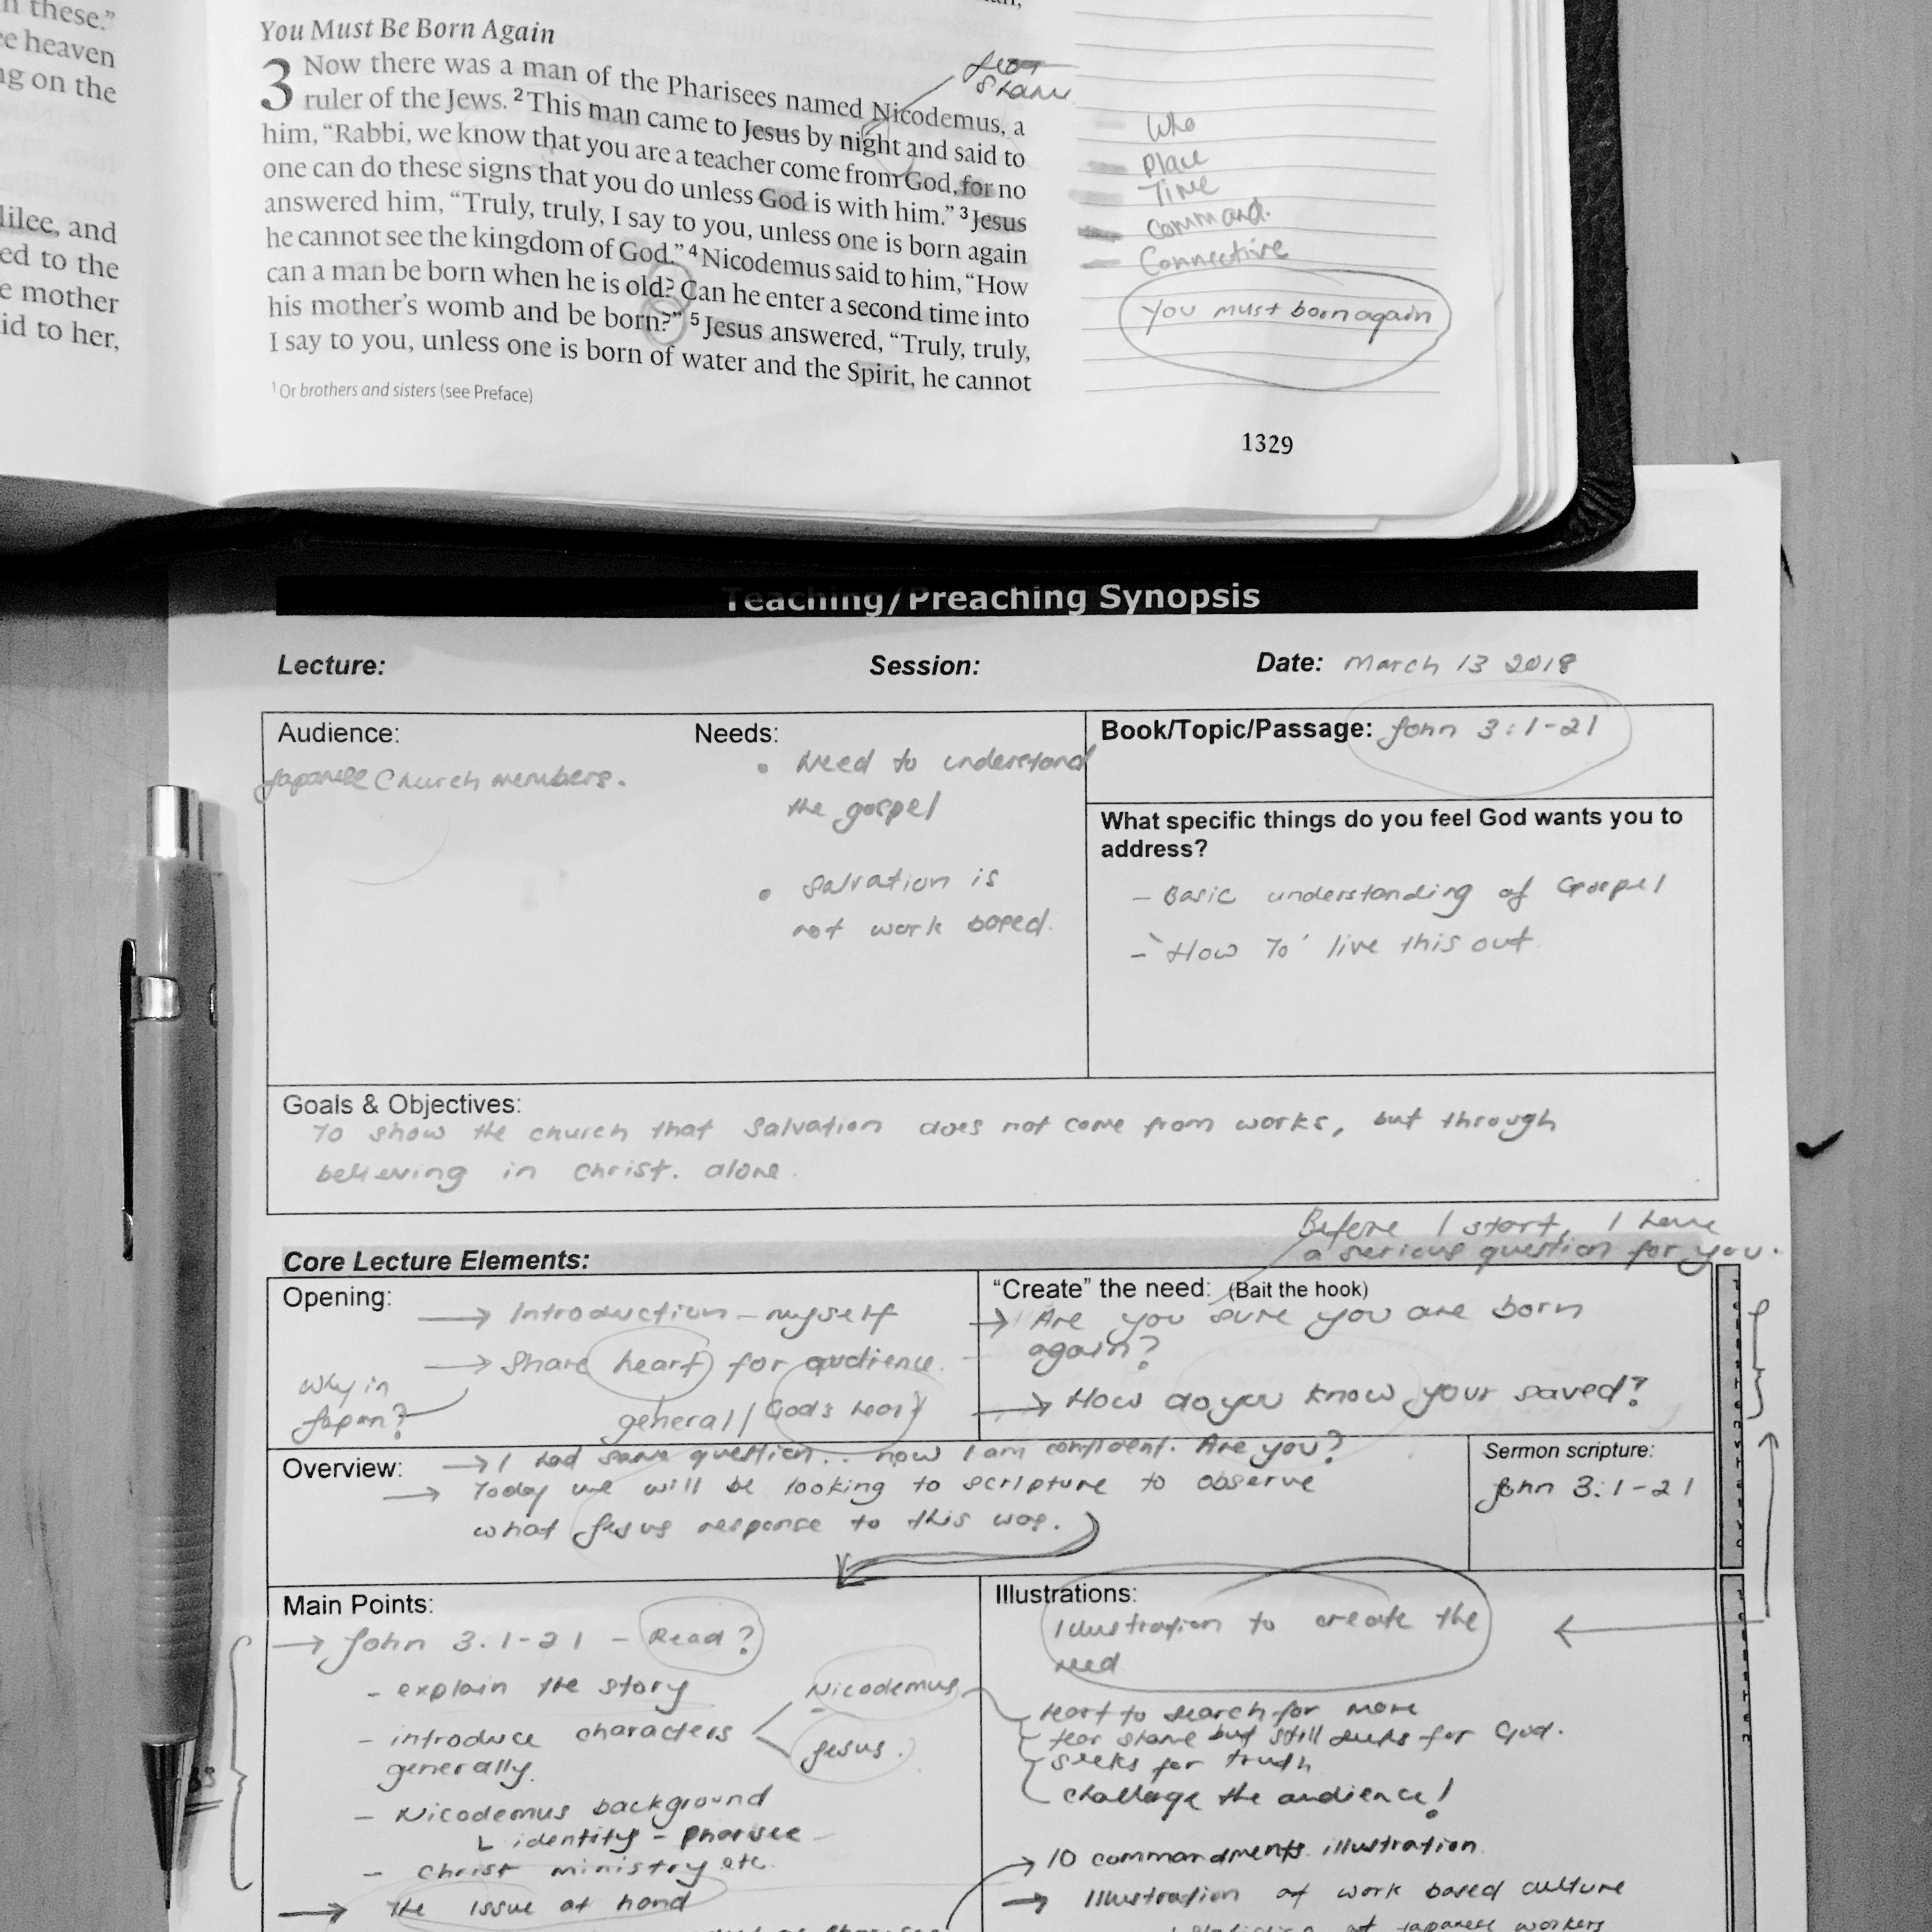 n these."
ee heaven
ng on the
lilee, and
ed to the
e mother
id to her,
You Must Be Born Again
3 Now there was a man of the Pharisees named Nicodemus, a
ruler of the Jews. 2 This man came to Jesus by night and said to
him, "Rabbi, we know that you are a teacher come from God, for no
one can do these signs that you do unless God is with him." 3 Jesus
answered him, "Truly, truly, I say to you, unless one is born again
he cannot see the kingdom of God." 4 Nicodemus said to him, "How
can a man be born when he is old? Can he enter a second time into
his mother's womb and be born?" 5 Jesus answered, "Truly, truly,
I say to you, unless one is born of water and the Spirit, he cannot
1 Or brothers and sisters (see Preface)
Who
Place
Time
Command.
Connective
You must born again
1329
Teaching/Preaching Synopsis
Lecture:
Session:
Date: March 13 2018
Audience:
Japanese Church members.
Needs:
• Need to understand
the gospel
• Salvation is
not work based.
Book/Topic/Passage: John 3:1-21
What specific things do you feel God wants you to
address?
- Basic understanding of Gospel
- 'How To' live this out
Goals & Objectives:
To show the church that Salvation does not come from works, but through
believing in Christ. alone.
Before I start, I have
a serious question for you.
Core Lecture Elements:
Opening:
→ Introduction - myself
→ Share heart for audience.
Why in
Japan?
general / God's heart
"Create" the need: (Bait the hook)
→ Are you sure you are born
again?
→ How do you know your saved?
Overview:
→ I had same question.. now I am confident. Are you?
→ Today we will be looking to scripture to observe
what Jesus response to this was.
Sermon scripture:
John 3:1-21
Main Points:
→ John 3.1-21 - Read?
- explain the story
- introduce characters
generally.
Nicodemus
Jesus.
- Nicodemus background
identity - pharisee
- Christ ministry etc.
→ The issue at hand
Illustrations:
Illustration to create the
need
heart to search for more
fear shame but still seeks for God.
seeks for truth
challenge the audience!
→ 10 commandments illustration
→ Illustration of work based culture
of Japanese workers